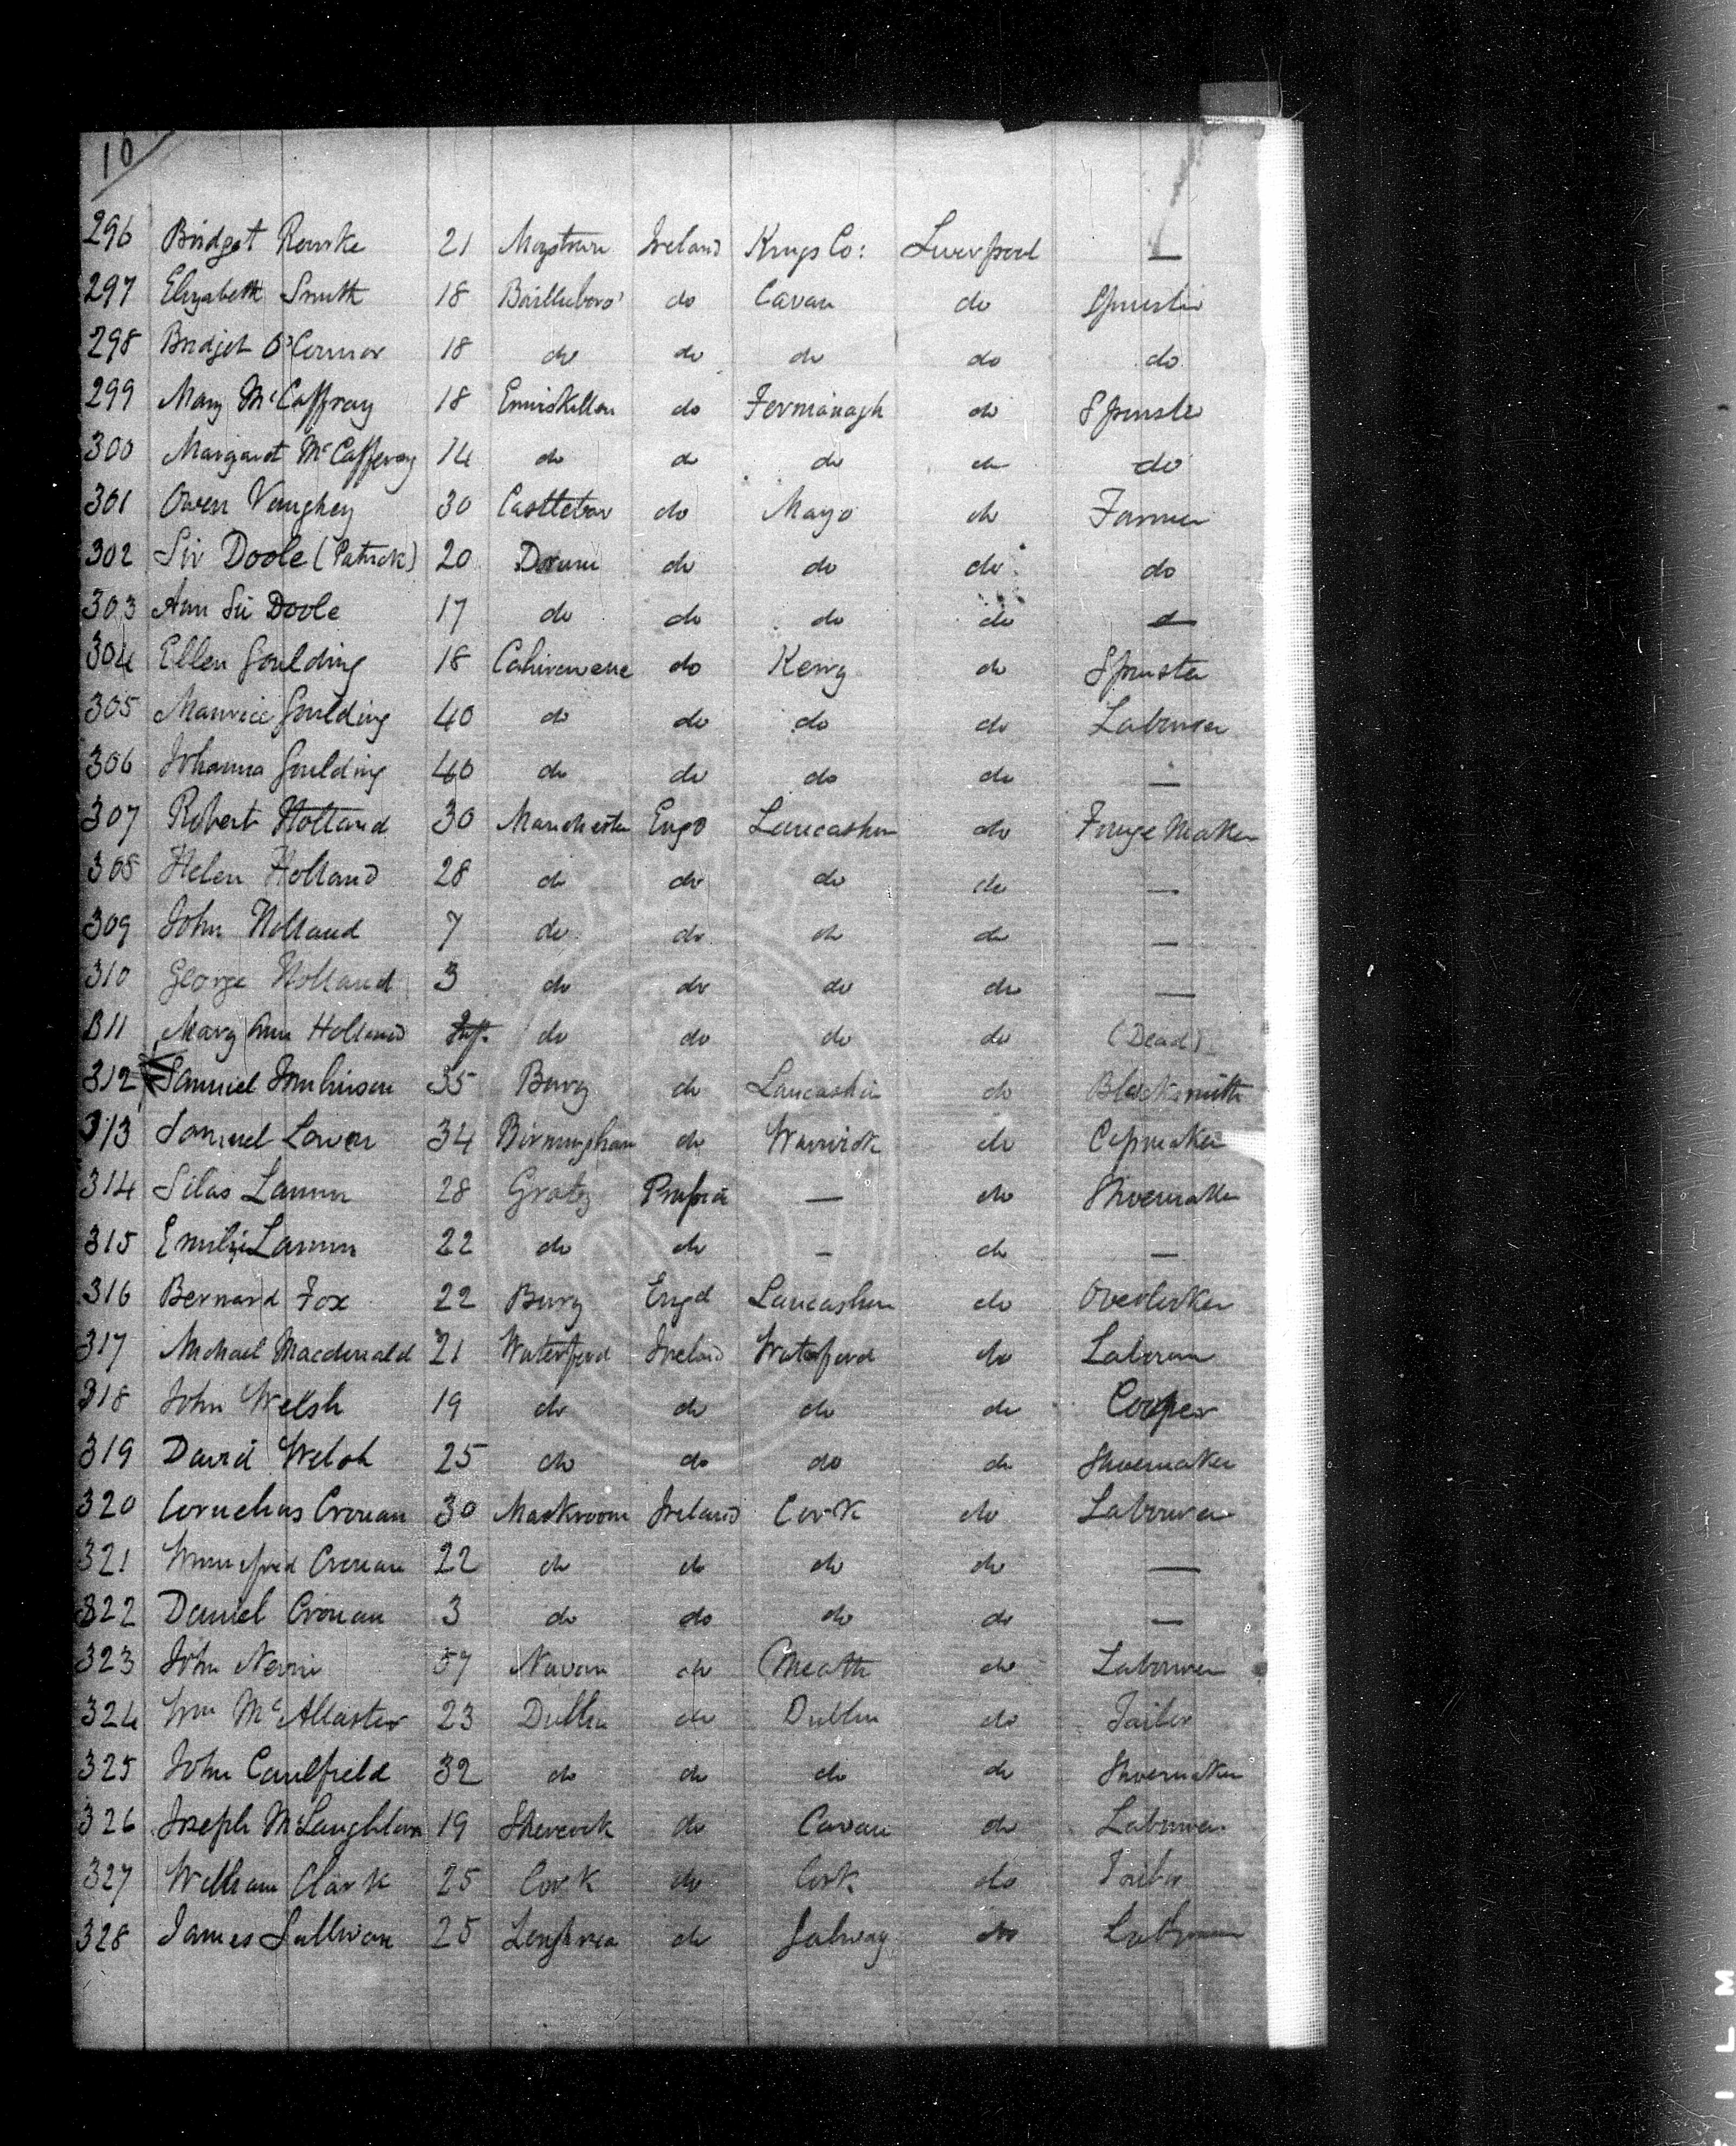 10
296 Bridget Rourke 21 Moystown Ireland Kings Co: Liverpool —
297 Elizabeth Smith 18 Baillieboro' do Cavan do Spinster
298 Bridget O'Connor 18 do do do do do
299 Mary McCaffray 18 Enniskillen do Fermanagh do Spinster
300 Margaret McCafferay 14 do do do do do
301 Owen Vaughey 30 Castlebar do Mayo do Farmer
302 Siv Doole (Patrick) 20 do do do do
303 Ann Siv Doole 17 do do do do —
304 Ellen Goulding 18 do Kerry do Spinster
305 Maurice Goulding 40 do do do do Labourer
306 Johanna Goulding 40 do do do do —
307 Robert Holland 30 Manchester Engd Lancashire do Maker
308 Helen Holland 28 do do do do —
309 John Holland 7 do do do do —
310 George Holland 3 do do do do —
311 Mary Ann Holland Inft. do do do do (Dead)
312 Samuel Tomlinson 35 Bury do Lancashire do Blacksmith
313 Samuel Lowen 34 Birmingham do Warwick do Capmaker
314 Silas Lamm 28 Gratz Prussia — do Shoemaker
315 Emilie Lamm 22 do do — do —
316 Bernard Fox 22 Bury Engd Lancashire do Overlooker
317 Michael Macdonald 21 Waterford Ireland Waterford do Labourer
318 John Welsh 19 do do do do Cooper
319 David Welsh 25 do do do do Shoemaker
320 Cornelius Cronan 30 Mackroom Ireland Cork do Labourer
321 Winnefred Cronan 22 do do do do —
322 Daniel Cronan 3 do do do do —
323 John Nevin 37 Navan do Meath do Labourer
324 Wm McAllaster 23 Dublin do Dublin do Tailor
325 John Caulfield 32 do do do do Shoemaker
326 Joseph McLaughlin 19 Shercock do Cavan do Labourer
327 William Clark 25 Cork do Cork do Tailor
328 James Sullivan 25 Loughrea do Galway do Labourer
FILM